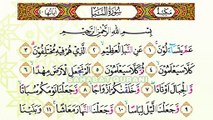 سُورَةُ النَّبَإِ
بِسْمِ اللَّهِ الرَّحْمَٰنِ الرَّحِيمِ
عَمَّ يَتَسَاءَلُونَ ١ عَنِ النَّبَإِ الْعَظِيمِ ٢ الَّذِي هُمْ فِيهِ مُخْتَلِفُونَ ٣
كَلَّا سَيَعْلَمُونَ ٤ ثُمَّ كَلَّا سَيَعْلَمُونَ ٥ أَلَمْ نَجْعَلِ الْأَرْضَ مِهَادًا ٦
وَالْجِبَالَ أَوْتَادًا ٧ وَخَلَقْنَاكُمْ أَزْوَاجًا ٨ وَجَعَلْنَا نَوْمَكُمْ سُبَاتًا
٩ وَجَعَلْنَا اللَّيْلَ لِبَاسًا ١٠ وَجَعَلْنَا النَّهَارَ مَعَاشًا ١١ وَبَنَيْنَا